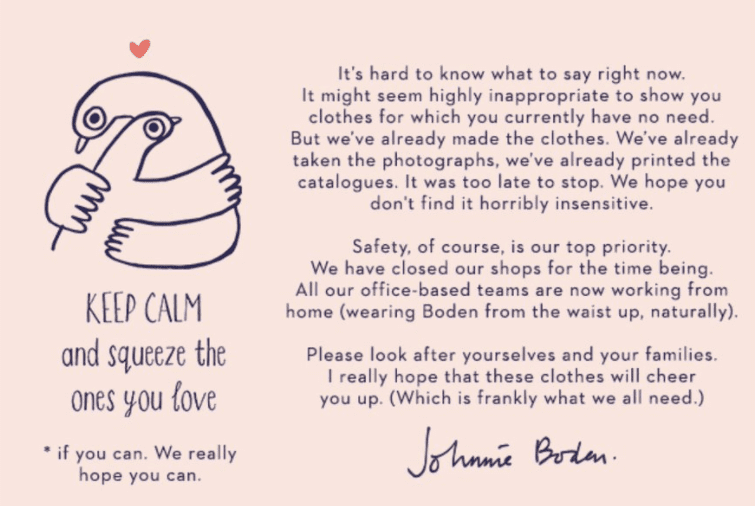 KEEP CALM
and squeeze the
ones you love
* if you can. We really
hope you can.
It's hard to know what to say right now.
It might seem highly inappropriate to show you
clothes for which you currently have no need.
But we've already made the clothes. We've already
taken the photographs, we've already printed the
catalogues. It was too late to stop. We hope you
don't find it horribly insensitive.
Safety, of course, is our top priority.
We have closed our shops for the time being.
All our office-based teams are now working from
home (wearing Boden from the waist up, naturally).
Please look after yourselves and your families.
I really hope that these clothes will cheer
you up. (Which is frankly what we all need.)
Johnnie Boden.